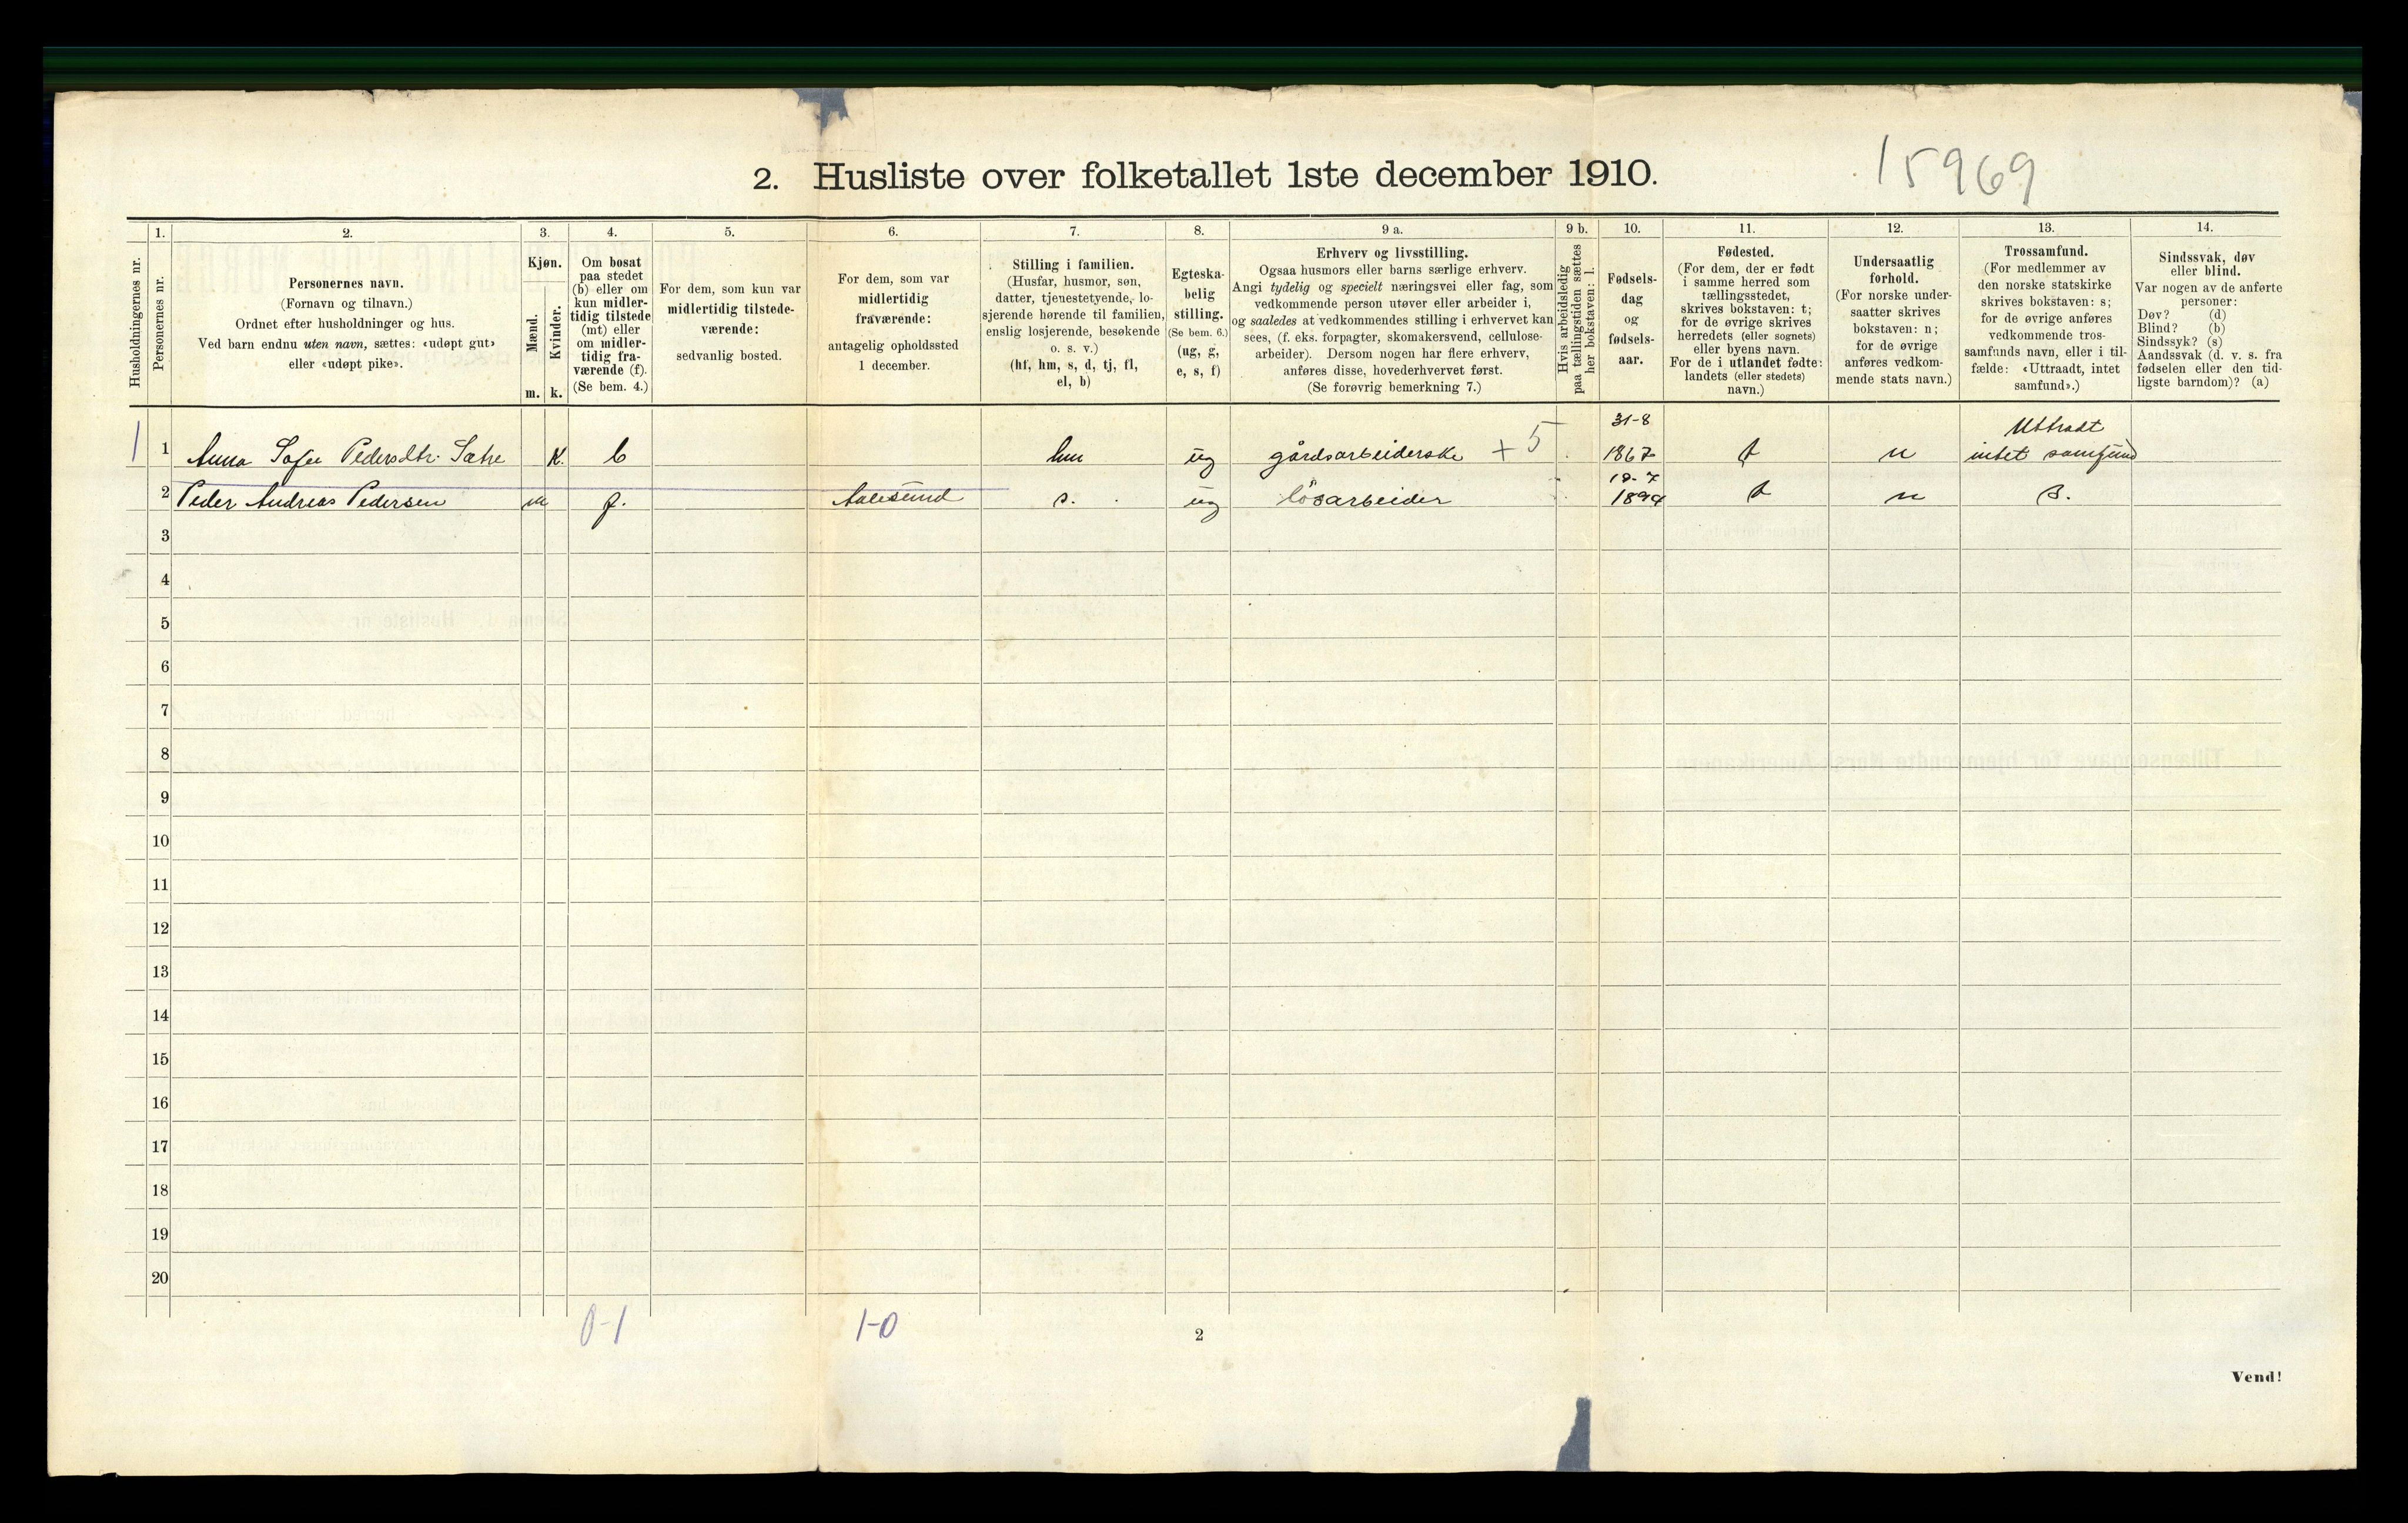 2. Husliste over folketallet 1ste december 1910.
15969
1. 2. 3. 4. 5. 6. 7. 8. 9 a. 9 b. 10. 11. 12. 13. 14.
Husholdningernes nr.
Personernes nr.
Personernes navn.
(Fornavn og tilnavn.)
Ordnet efter husholdninger og hus.
Ved barn endnu uten navn, sættes: «udøpt gut»
eller «udøpt pike».
Kjøn.
Mænd.
Kvinder.
m. k.
Om bosat
paa stedet
(b) eller om
kun midler-
tidig tilstede
(mt) eller
om midler-
tidig fra-
værende (f).
(Se bem. 4.)
For dem, som kun var
midlertidig tilstede-
værende:
sedvanlig bosted.
For dem, som var
midlertidig
fraværende:
antagelig opholdssted
1 december.
Stilling i familien.
(Husfar, husmor, søn,
datter, tjenestetyende, lo-
sjerende hørende til familien,
enslig losjerende, besøkende
o. s. v.)
(hf, hm, s, d, tj, fl,
el, b)
Egteska-
belig
stilling.
(Se bem. 6.)
(ug, g,
e, s, f)
Erhverv og livsstilling.
Ogsaa husmors eller barns særlige erhverv.
Angi tydelig og specielt næringsvei eller fag, som
vedkommende person utøver eller arbeider i,
og saaledes at vedkommendes stilling i erhvervet kan
sees, (f. eks. forpagter, skomakersvend, cellulose-
arbeider). Dersom nogen har flere erhverv,
anføres disse, hovederhvervet først.
(Se forøvrig bemerkning 7.)
Hvis arbeidsledig
paa tællingstiden sættes
her bokstaven: l.
Fødsels-
dag
og
fødsels-
aar.
Fødested.
(For dem, der er født
i samme herred som
tællingsstedet,
skrives bokstaven: t;
for de øvrige skrives
herredets (eller sognets)
eller byens navn.
For de i utlandet fødte:
landets (eller stedets)
navn.)
Undersaatlig
forhold.
(For norske under-
saatter skrives
bokstaven: n;
for de øvrige
anføres vedkom-
mende stats navn.)
Trossamfund.
(For medlemmer av
den norske statskirke
skrives bokstaven: s;
for de øvrige anføres
vedkommende tros-
samfunds navn, eller i til-
fælde: «Uttraadt, intet
samfund».)
Sindssvak, døv
eller blind.
Var nogen av de anførte
personer:
Døv? (d)
Blind? (b)
Sindssyk? (s)
Aandssvak (d. v. s. fra
fødselen eller den tid-
ligste barndom)? (a)
31-8 Uttradt
1 1 Anna Sofie Pedersdtr. Sætre K. b hm ug gårdsarbeiderske + 5 1867 t n intet samfund
19-7
2 Peder Andreas Pedersen m f. Aalesund s. ug lösarbeider 1894 t n s.
3
4
5
6
7
8
9
10
11
12
13
14
15
16
17
18
19
20
0-1 1-0
2
Vend!